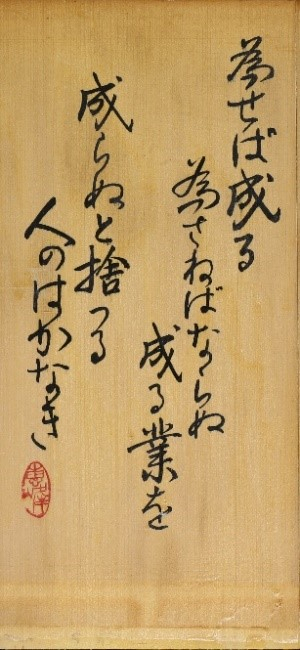 為せば成る
為さねばならぬ
成る業を
成らぬと捨つる
人のはかなき